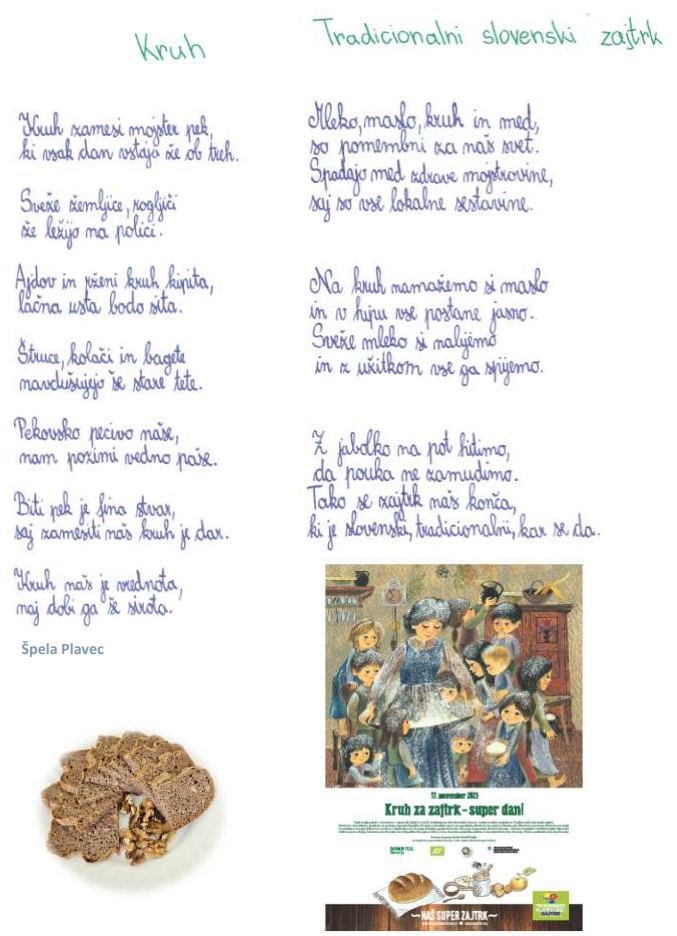 Kruh
Kruh zamesi mojster pek,
ki vsak dan vstaja že ob treh.
Sveže žemljice, rogljiči
že ležijo na polici.
Ajdov in rženi kruh kipita,
lačna usta bodo sita.
Štruce, kolači in bagete
navdušujejo še stare tete.
Pekovsko pecivo naše,
nam pozimi vedno paše.
Biti pek je fina stvar,
saj zamesiti naš kruh je dar.
Kruh naš je vrednota,
naj dobi ga še sirota.
Špela Plavec
Tradicionalni slovenski zajtrk
Mleko, maslo, kruh in med,
so pomembni za naš svet.
Spadajo med zdrave mojstrovine,
saj so vse lokalne sestavine.
Na kruh namažemo si maslo
in v hipu vse postane jasno.
Sveže mleko si nalijemo
in z užitkom vse ga spijemo.
Z jabolko na pot hitimo,
da pouka ne zamudimo.
Tako se zajtrk naš konča,
ki je slovenski, tradicionalni, kar se da.
17. november 2023
Kruh za zajtrk - super dan!
NAŠ SUPER ZAJTRK